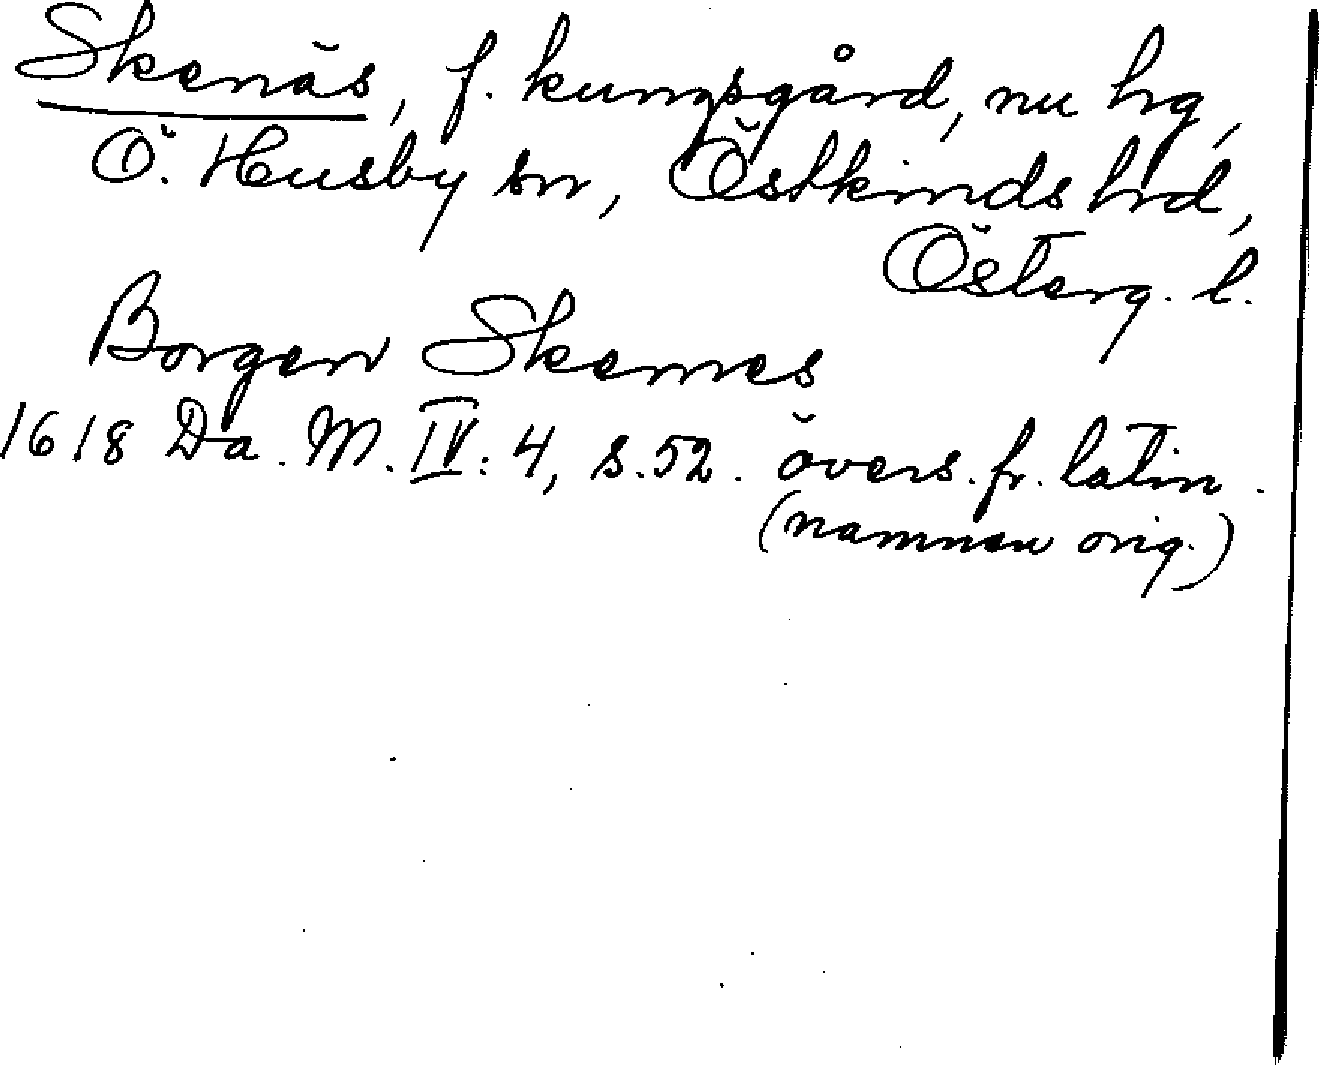 Skenäs, f. kungsgård, nu hg,
Ö. Husby sn, Östkinds hrd,
Österg. l.
Borgen Skenes
1618 Da. M. IV: 4, s. 52. övers. fr. latin.
(namnen orig.)